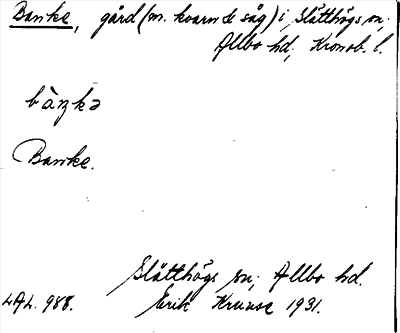 Banke, gård (m. kvarn & såg) i Slätthögs sn,
Allbo hd, Kronob. l.
bàŋkə
Banke.
Slätthögs sn, Allbo hd.
LAL. 988. Erik Kruuse 1931.